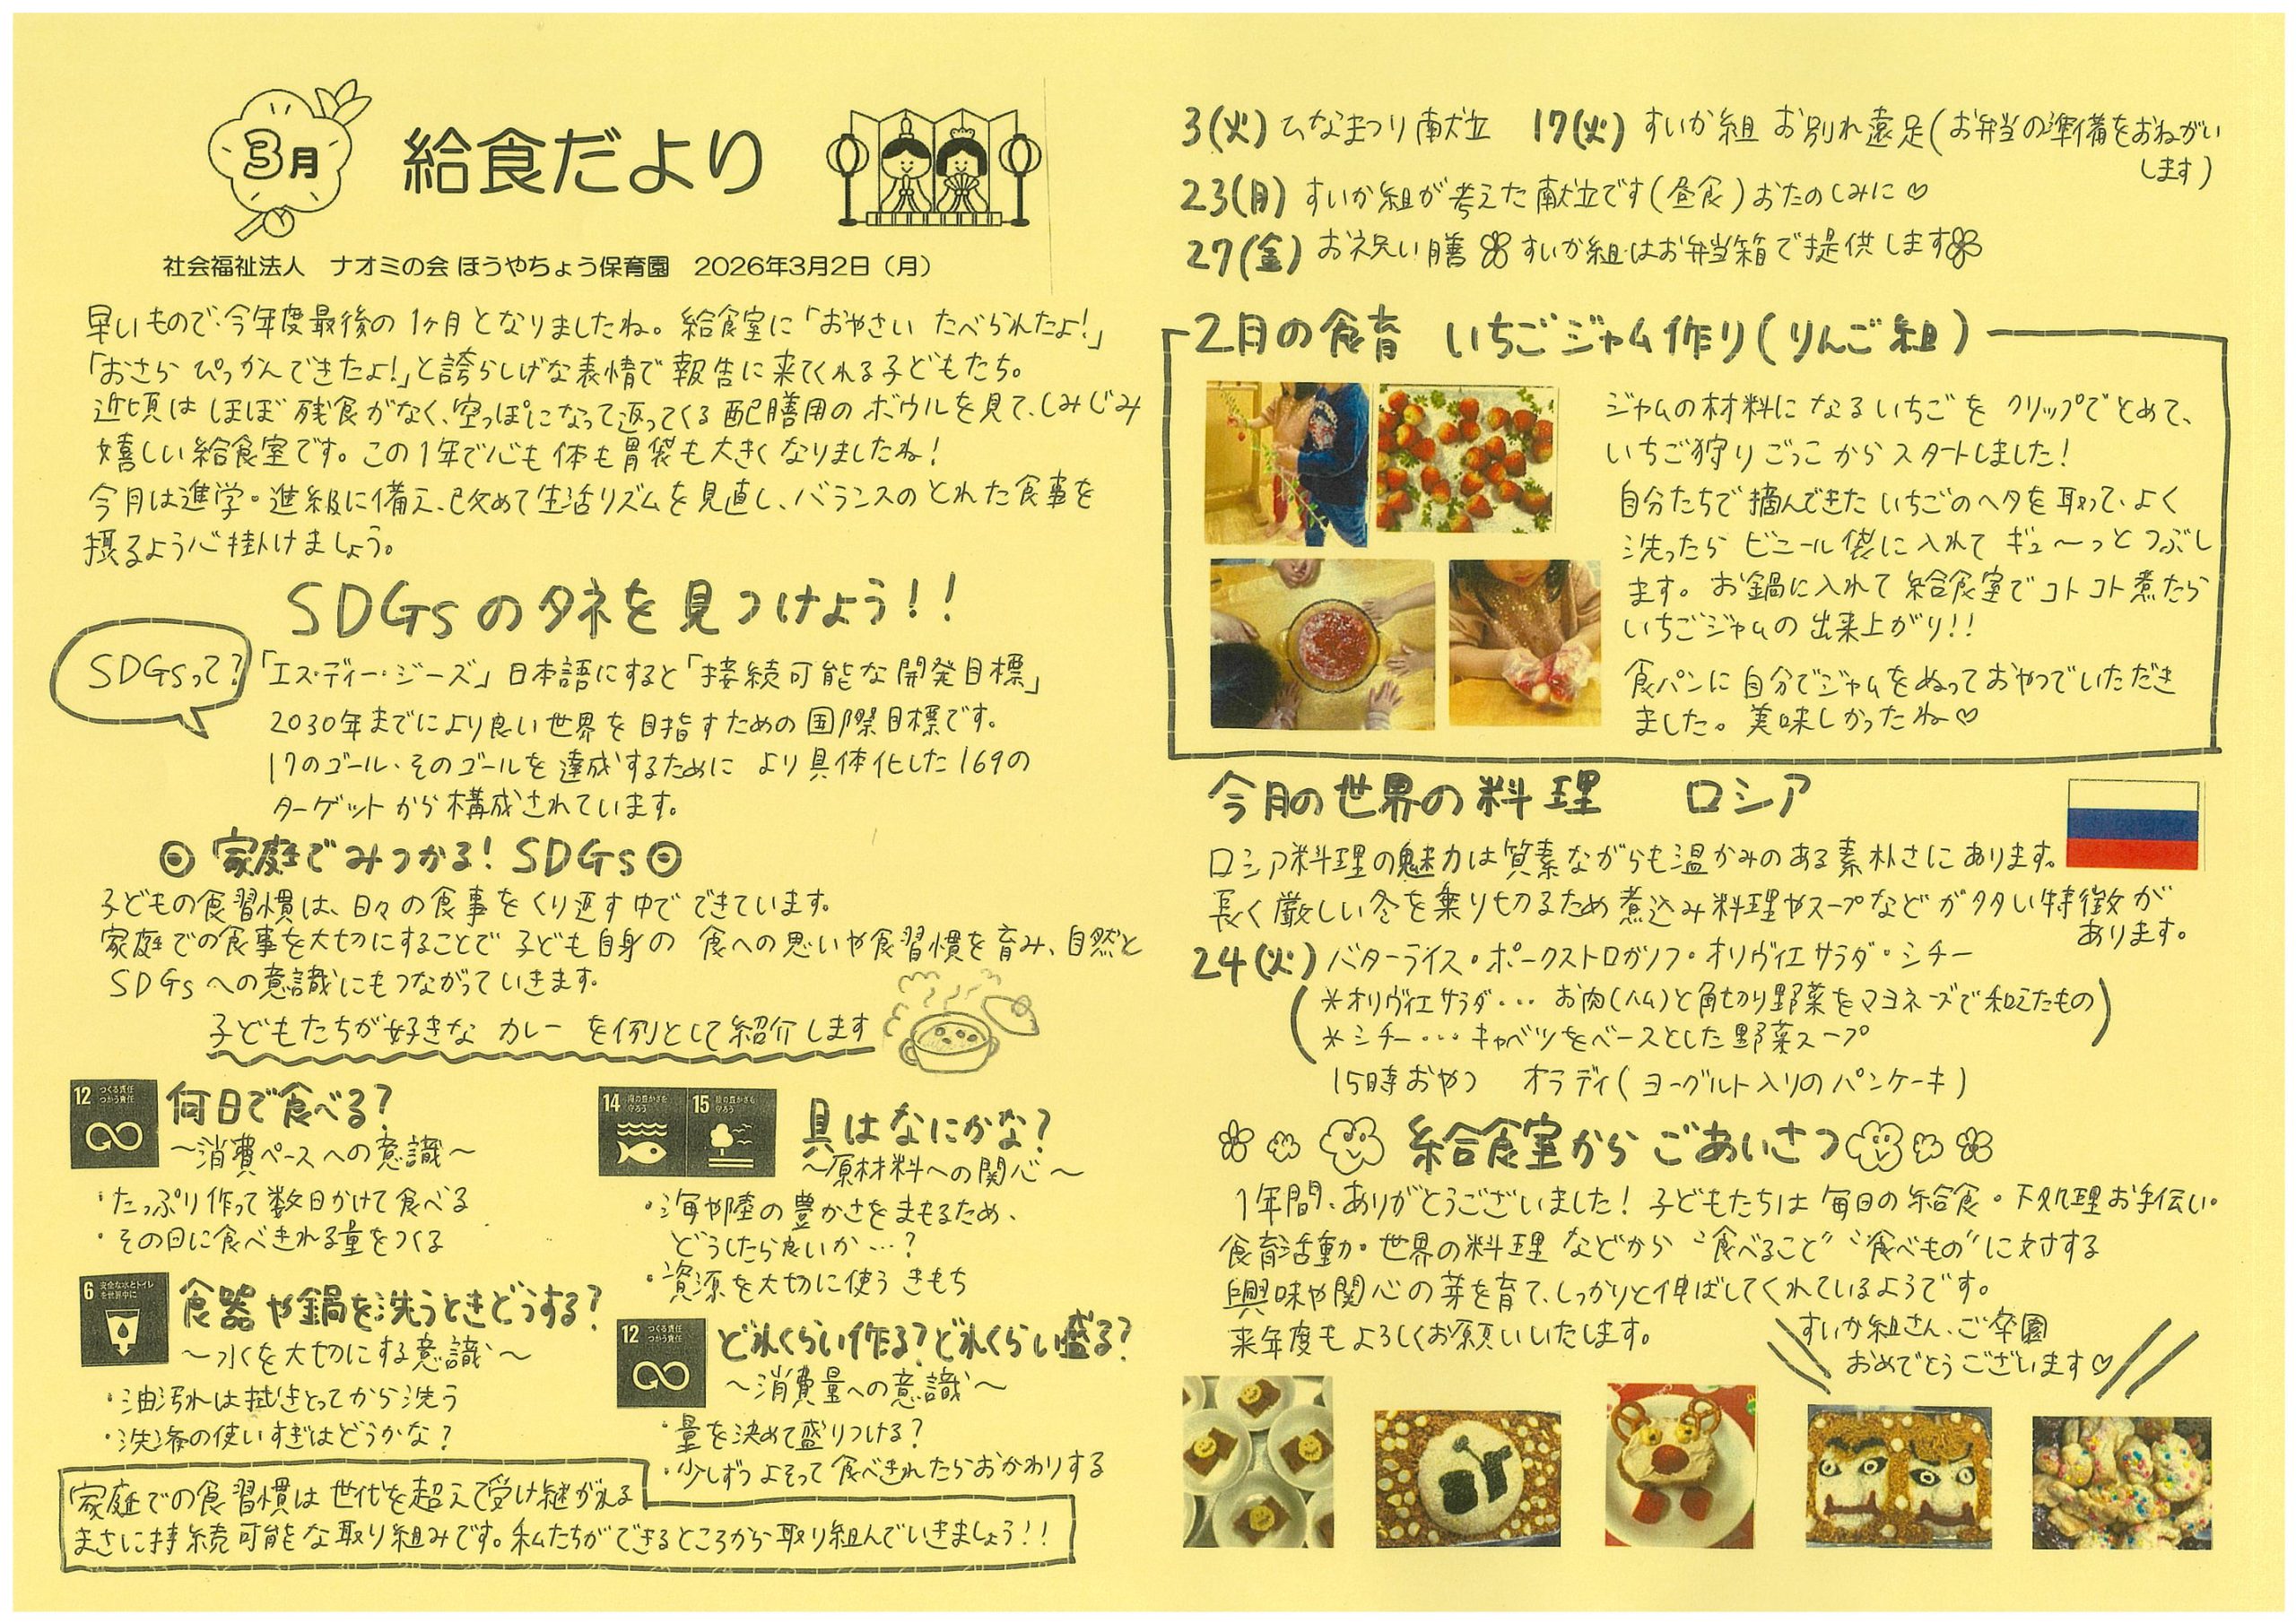 3月
給食だより
社会福祉法人　ナオミの会 ほうやちょう保育園　2026年3月2日（月）
早いもので、今年度最後の1ヶ月となりましたね。給食室に「おやさい たべられたよ!」
「おさら ぴっかんできたよ!」と誇らしげな表情で報告に来てくれる子どもたち。
近頃は ほぼ 残食がなく、空っぽになって返ってくる配膳用のボウルを見て、しみじみ
嬉しい給食室です。この1年で心も体も胃袋も大きくなりましたね!
今月は進学・進級に備え、改めて生活リズムを見直し、バランスのとれた食事を
摂るよう心掛けましょう。
SDGsのタネを見つけよう!!
SDGsって?
「エス・ディー・ジーズ」日本語にすると「接続可能な開発目標」
2030年までにより良い世界を目指すための国際目標です。
17のゴール・そのゴールを達成するために より具体化した169の
ターゲットから構成されています。
◎ 家庭でみつかる! SDGs ◎
子どもの食習慣は、日々の食事をくり返す中でできています。
家庭での食事を大切にすることで 子ども自身の 食への思いや食習慣を育み、自然と
SDGsへの意識にもつながっていきます。
子どもたちが好きな カレー を例として紹介します
12 つくる責任
つかう責任
何日で食べる?
～消費ペースへの意識～
・たっぷり作って数日かけて食べる
・その日に食べきれる量をつくる
14 海の豊かさを
守ろう
15 陸の豊かさも
守ろう
具はなにかな?
～原材料への関心～
・海や陸の豊かさをまもるため、
どうしたら良いか…?
・資源を大切に使う きもち
6 安全な水とトイレ
を世界中に
食器や鍋を洗うときどうする?
～水を大切にする意識～
・油汚れは拭きとってから洗う
・洗剤の使いすぎはどうかな?
12 つくる責任
つかう責任
どれくらい作る?どれくらい盛る?
～消費量への意識～
・量を決めて盛りつける?
・少しずつよそって 食べきれたらおかわりする
家庭での食習慣は世代を超えて受け継がれる
まさに持続可能な取り組みです。私たちができるところから取り組んでいきましょう!!
3(火) ひなまつり献立　17(火) すいか組 お別れ遠足(お弁当の準備をおねがい
します)
23(月) すいか組が考えた献立です(昼食)おたのしみに♡
27(金) お祝い膳 すいか組はお弁当箱で提供します
2月の食育　いちごジャム作り(りんご組)
ジャムの材料になるいちごを クリップでとめて、
いちご狩りごっこからスタートしました!
自分たちで摘んできた いちごのヘタを取って、よく
洗ったら ビニール袋に入れて ギュ～っとつぶし
ます。お鍋に入れて 給食室でコトコト煮たら
いちごジャムの出来上がり!!
食パンに自分でジャムをぬっておやつでいただき
ました。美味しかったね♡
今月の世界の料理　ロシア
ロシア料理の魅力は質素ながらも温かみのある素朴さにあります。
長く厳しい冬を乗り切るため煮込み料理やスープなどが多い特徴が
あります。
24(火) バターライス・ポークストロガノフ・オリヴィエサラダ・シチー
(※オリヴィエサラダ… お肉(ハム)と角切り野菜をマヨネーズで和えたもの
※シチー… キャベツをベースとした野菜スープ)
15時おやつ　オラディ(ヨーグルト入りのパンケーキ)
給食室からごあいさつ
1年間、ありがとうございました! 子どもたちは毎日の給食・下処理お手伝い・
食育活動・世界の料理 などから “食べること” “食べもの”に対する
興味や関心の芽を育て、しっかりと伸ばしてくれているようです。
来年度もよろしくお願いいたします。
すいか組さん、ご卒園
おめでとうございます♡